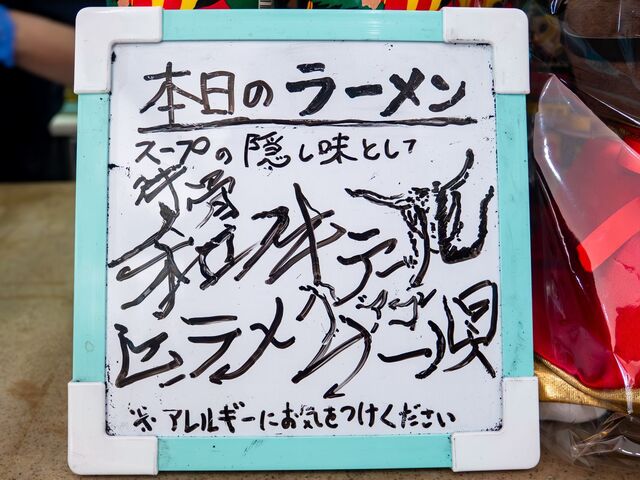 本日のラーメン
スープの隠し味として
牛骨
和牛テール
ヒラメ ムール貝
※アレルギーにお気をつけください